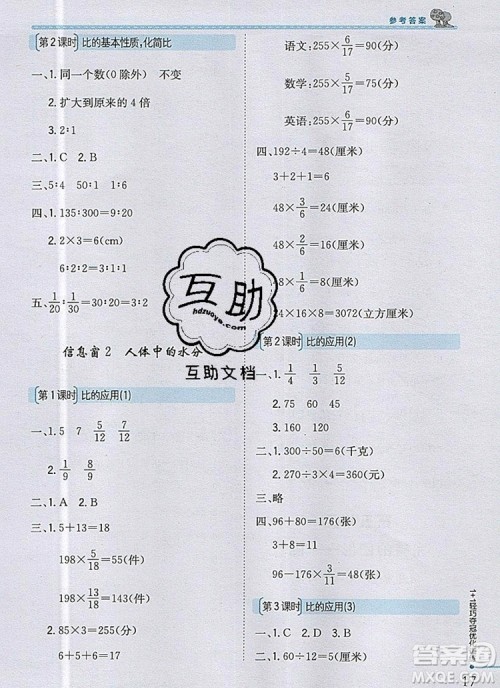 参考答案
第2课时 比的基本性质,化简比
一、1. 同一个数(0除外) 不变
2. 扩大到原来的4倍
3. 2∶1
二、1. C 2. B
三、5∶4 50∶1 1∶2
四、1. 135∶300=9∶20
2. 2×3=6(cm)
6∶2∶1=6∶2∶1
五、1/20∶1/30=30∶20=3∶2
信息窗2 人体中的水分
第1课时 比的应用(1)
一、1. 5 7 5/12 7/12
2. 1/9 8/9
二、1. 5+13=18
198×5/18=55(件)
198×13/18=143(件)
2. 85×3=255(分)
6+5+6=17
语文:255×6/17=90(分)
数学:255×5/17=75(分)
英语:255×6/17=90(分)
四、192÷4=48(厘米)
3+2+1=6
48×3/6=24(厘米)
48×2/6=16(厘米)
48×1/6=8(厘米)
24×16×8=3072(立方厘米)
第2课时 比的应用(2)
一、1. 1/4 1/3 4/15
2. 75 60 45
3. 160 120
二、1. 300÷6=50(千克)
2. 240÷2×3=360(元)
三、略
四、96+80=176(张)
3+8=11
96-176×3/11=48(张)
第3课时 比的应用(3)
一、1. D 2. C 3. C
二、1. 60÷12/5=25(厘米)
1+1轻巧夺冠优化
17
互助
hdzuoye.com
互助文档
答案圈
MXQE.COM